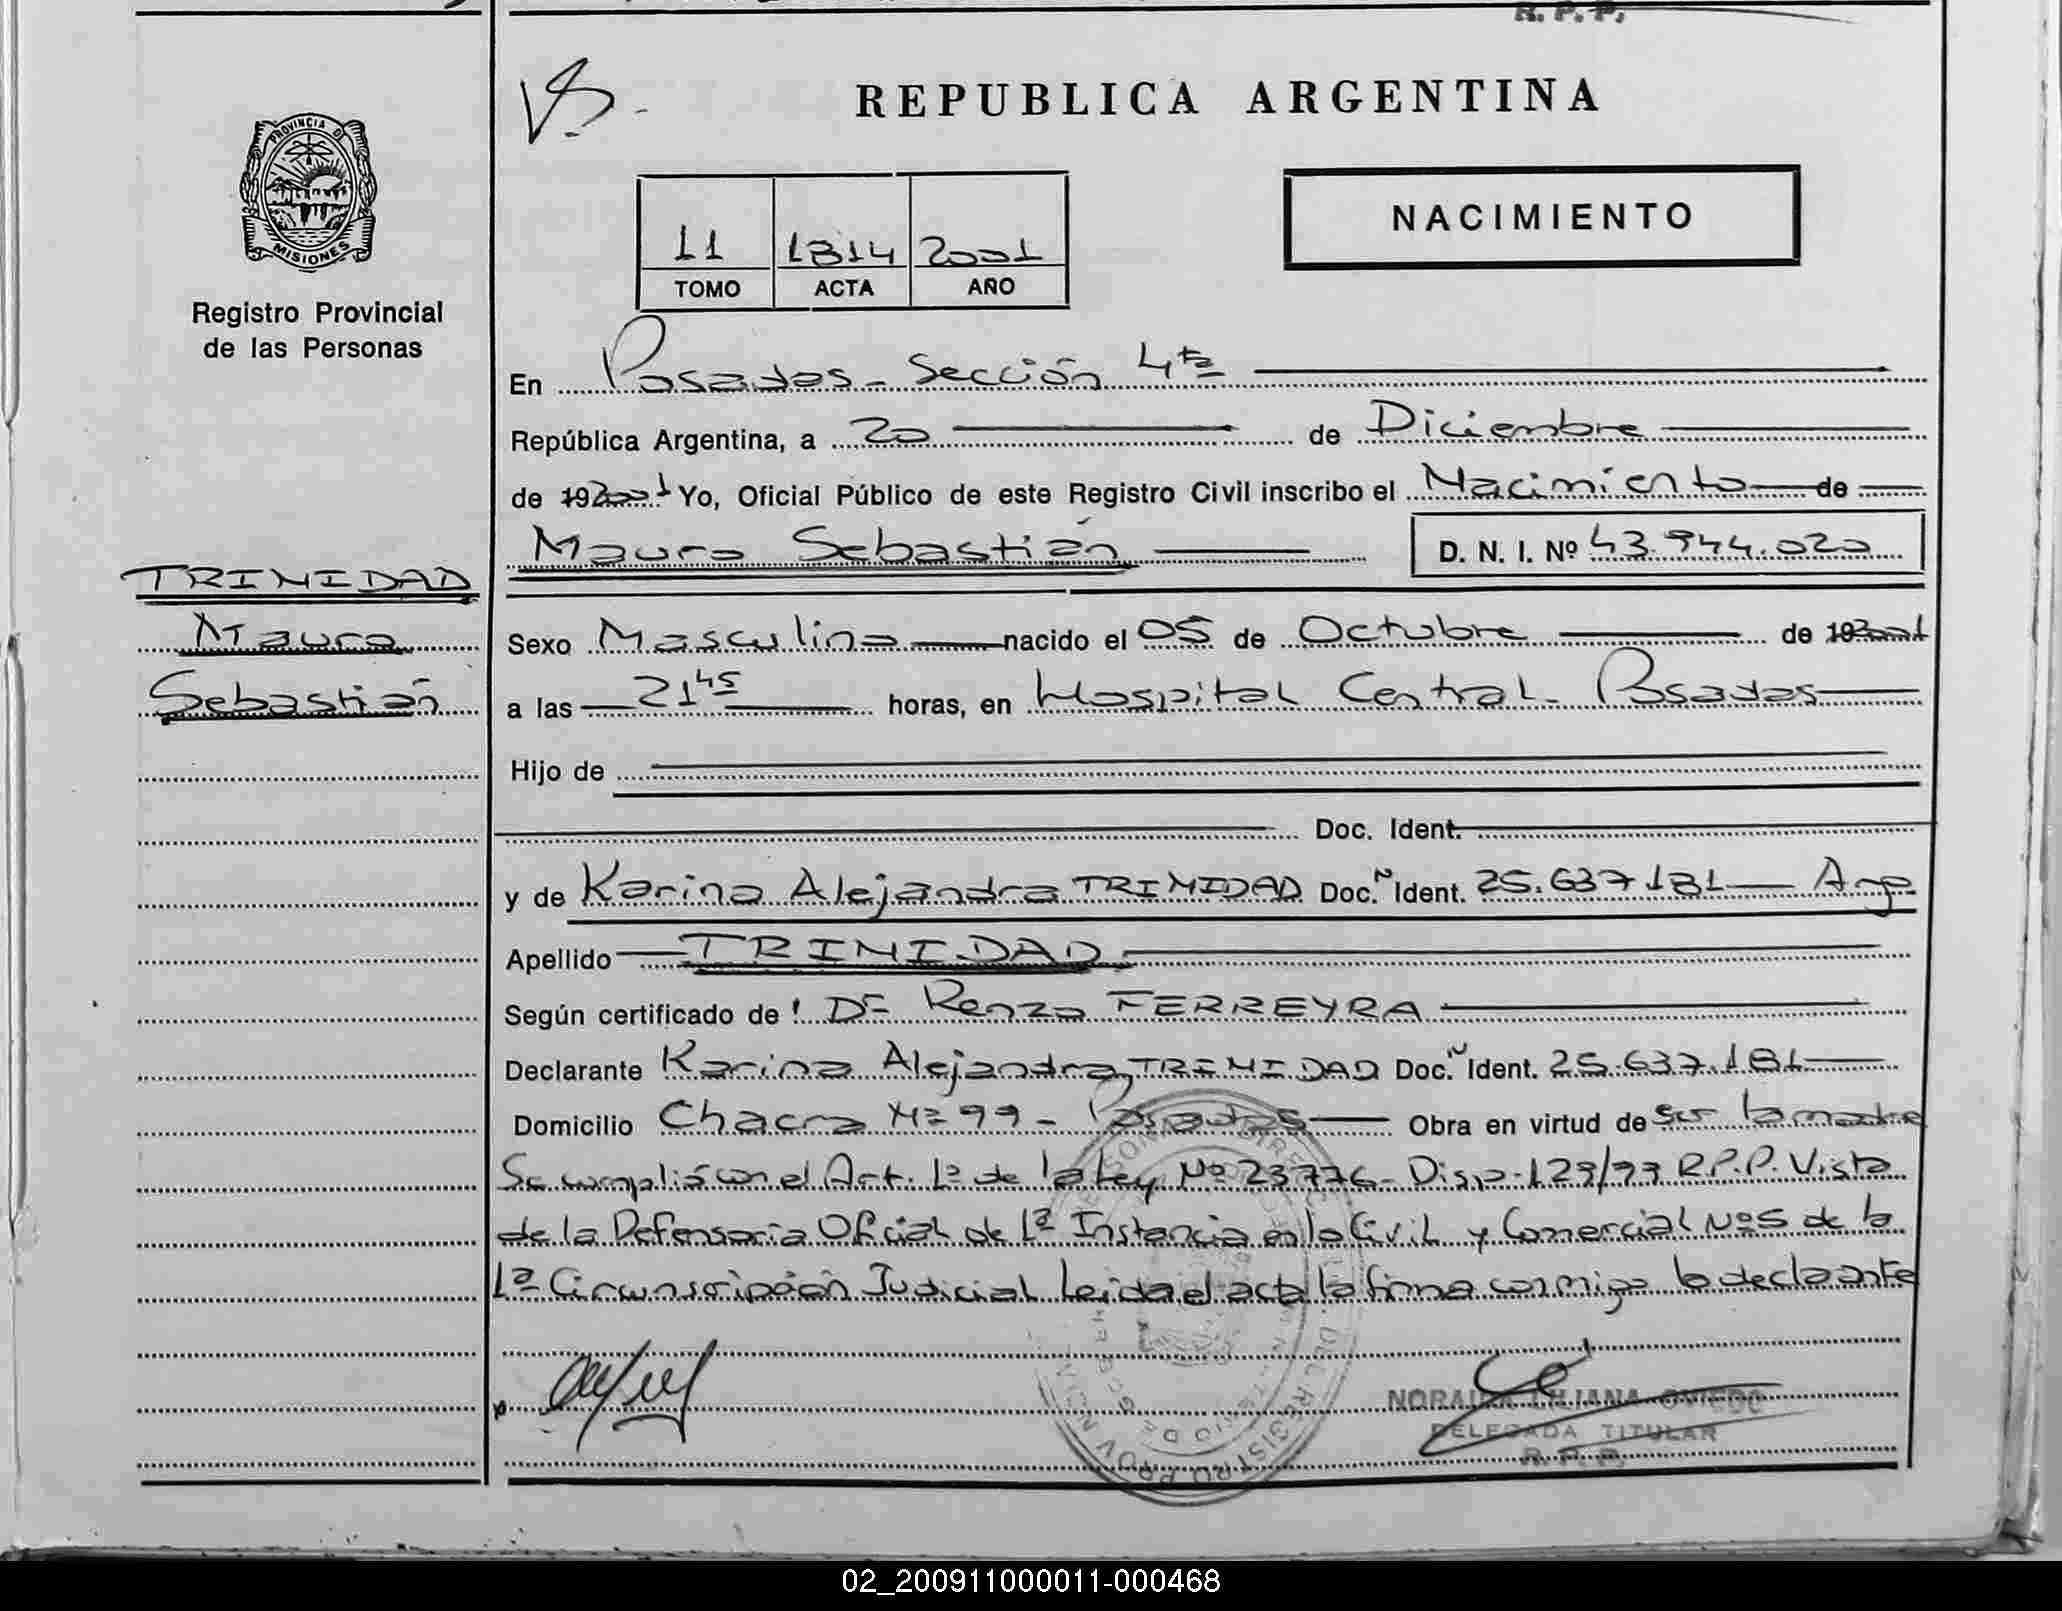 R. P. P.
REPUBLICA ARGENTINA
PROVINCIA DE
MISIONES
Registro Provincial
de las Personas
11 1814 2001
TOMO ACTA AÑO
NACIMIENTO
En Posadas - Sección 4ta
República Argentina, a 20 de Diciembre
de 192001 Yo, Oficial Público de este Registro Civil inscribo el Nacimiento de
Mauro Sebastián D. N. I. Nº 43.944.020
TRINIDAD
Mauro
Sebastián
Sexo Masculino nacido el 05 de Octubre de 192001
a las 21 45 horas, en Hospital Central - Posadas
Hijo de
Doc. Ident.
y de Karina Alejandra TRINIDAD Doc. Ident. 25.637.181 Arg
Apellido TRINIDAD
Según certificado de : Dr Renzo FERREYRA
Declarante Karina Alejandra TRINIDAD Doc. Ident. 25.637.181
Domicilio Chacra Nº 99 - Posadas Obra en virtud de ser la madre
Se cumplió con el Art. 1º de la Ley Nº 23776 - Disp. 129/99 R.P.P. Vista
de la Defensoria Oficial de 1ª Instancia en lo Civil y Comercial Nº 5 de la
1ª Circunscripción Judicial Leida el acta la firma conmigo la declarante
LILIANA OVIEDO
DELEGADA TITULAR
R. P. P.
02_200911000011-000468